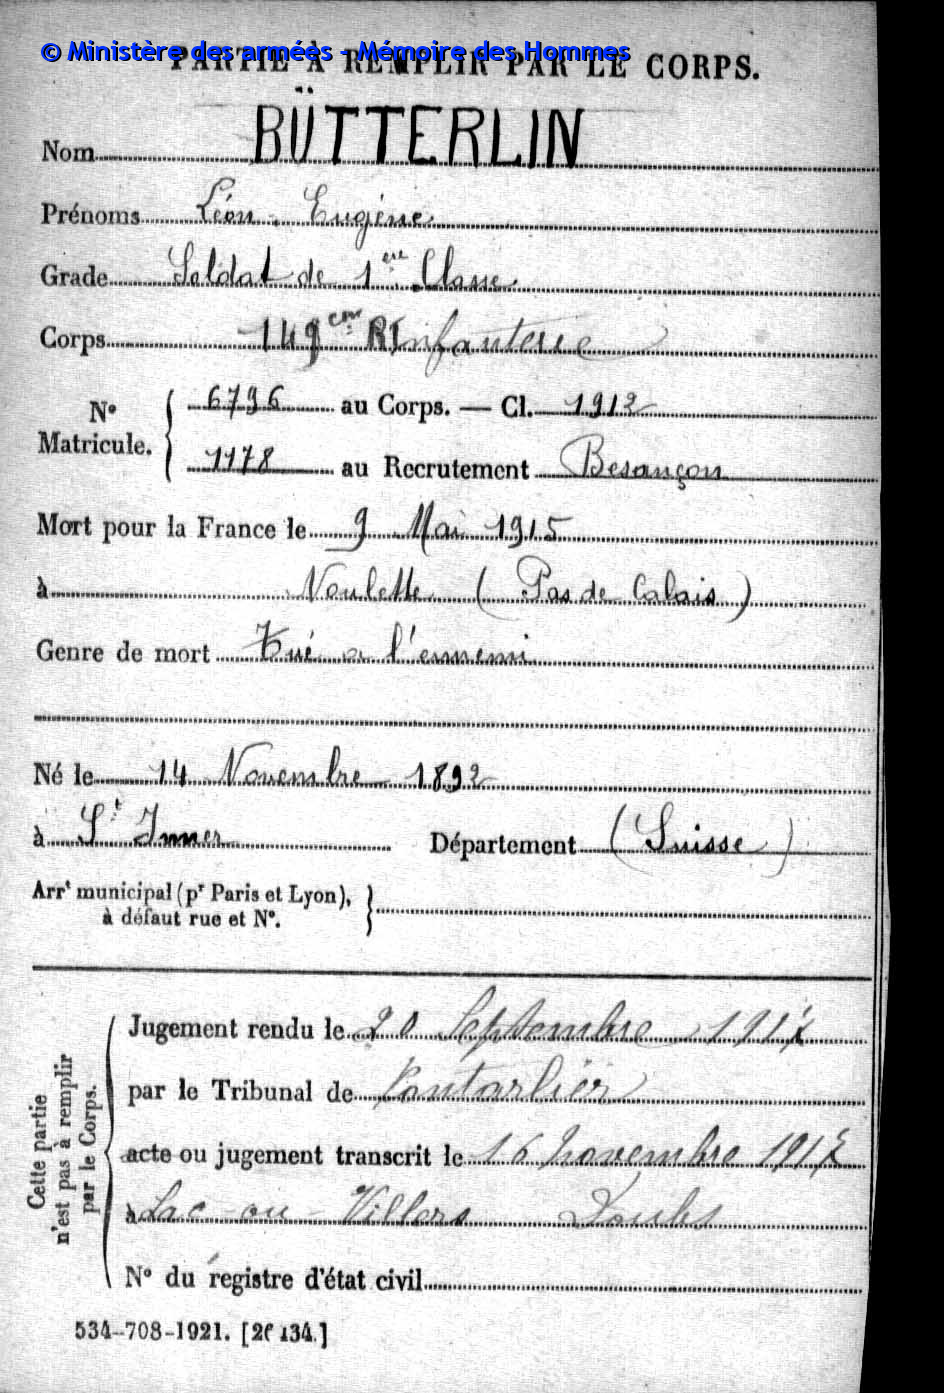 © Ministère des armées - Mémoire des Hommes
PARTIE À REMPLIR PAR LE CORPS.
Nom BÜTTERLIN
Prénoms Léon Eugène
Grade Soldat de 1ère Classe
Corps 149eme RInfanterie
N° Matricule. { 6796 au Corps. — Cl. 1912
1178 au Recrutement Besançon
Mort pour la France le 9 Mai 1915
à Noulette (Pas de Calais)
Genre de mort Tué a l'ennemi
Né le 14 Novembre 1892
à St Immer Département (Suisse)
Arrt municipal (pr Paris et Lyon),
à défaut rue et N°. }
Cette partie
n'est pas à remplir
par le Corps.
Jugement rendu le 20 Septembre 1917
par le Tribunal de Pontarlier
acte ou jugement transcrit le 16 novembre 1917
à Lac-ou-Villers Doubs
N° du registre d'état civil
534-708-1921. [26134.]